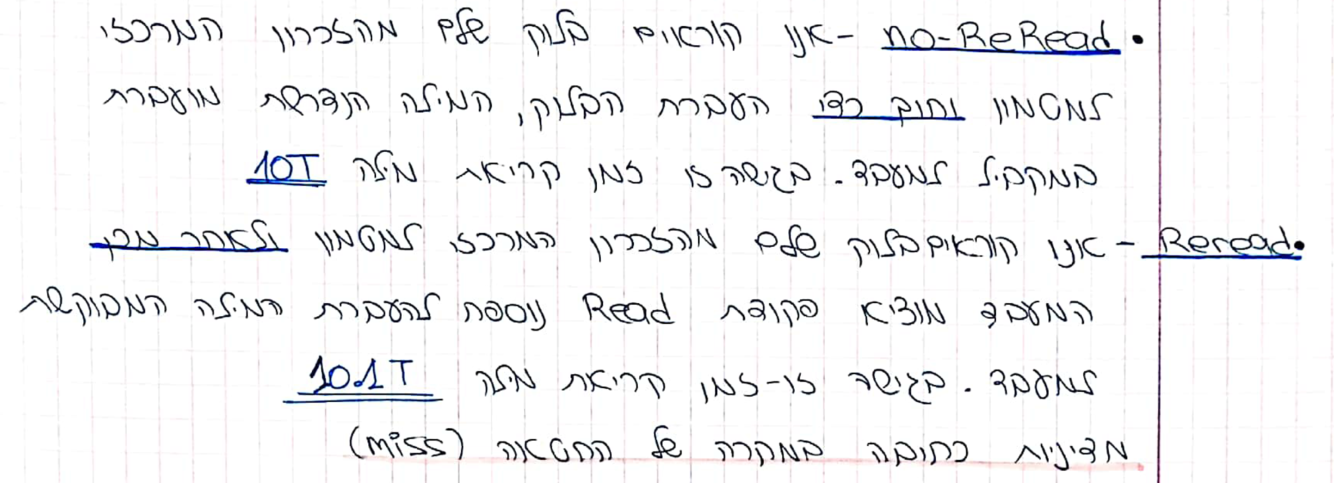 • no-ReRead - אנו קוראים בלוק שלם מהזכרון המרכזי
למטמון ותוך כדי העברת הבלוק, המילה הנדרשת מועברת
במקביל למעבד. בגישה זו זמן קריאת מילה 10T
• Reread - אנו קוראים בלוק שלם מהזכרון המרכזי למטמון ולאחר מכן
המעבד מוציא פקודת Read נוספת להעברת המילה המבוקשת
למעבד. בגישה זו-זמן קריאת מילה 10.1T
מדיניות כתובה במקרה של החטאה (miss)